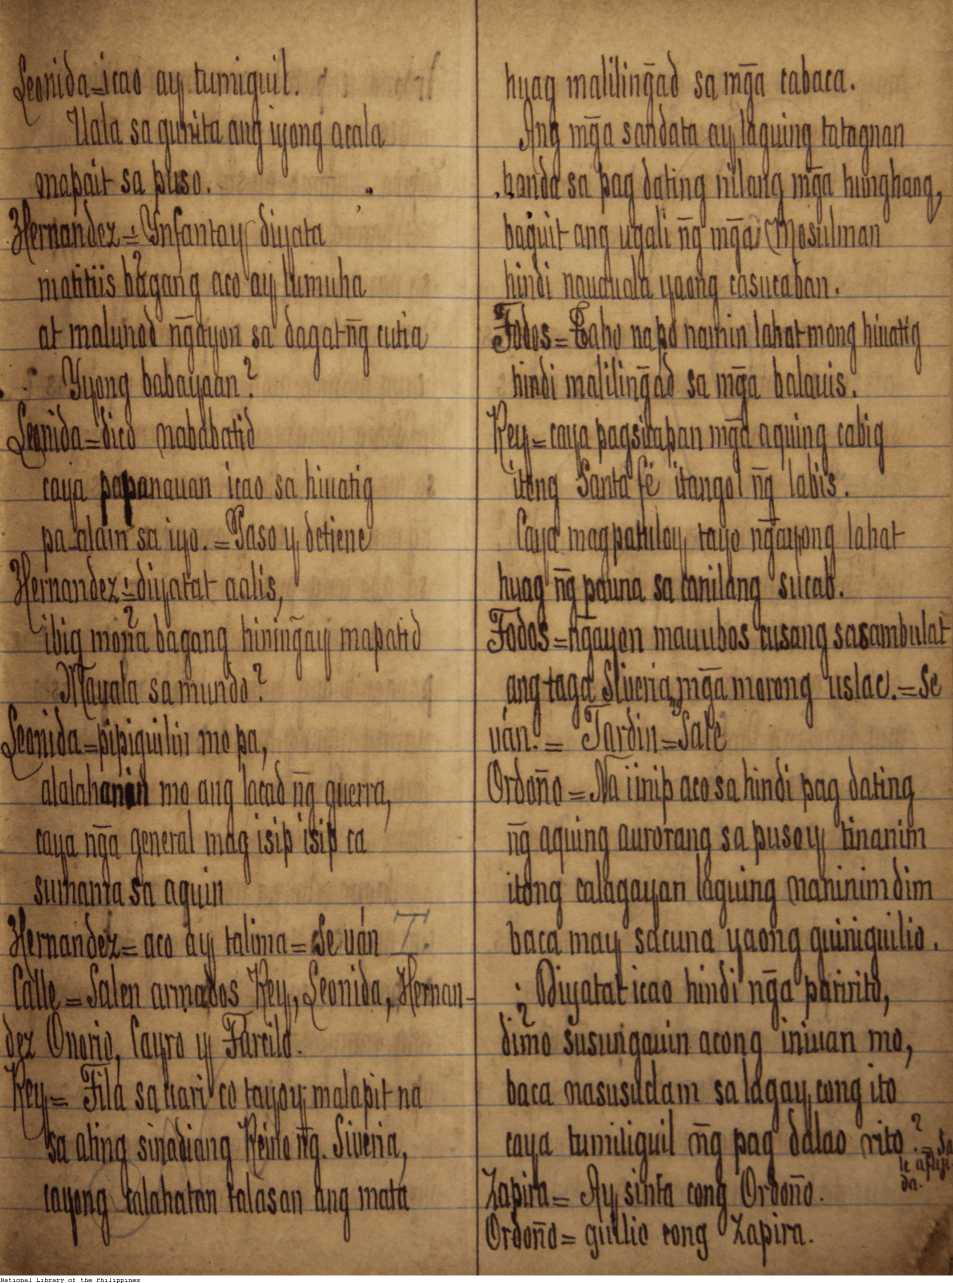 Leonida=icao ay tumiguil.
Uala sa gunita ang iyong acala
mapait sa puso.
Hernandez=Ynfantay diyata
matitiis bagang aco ay lumuha
at malunod n̄gayon sa dagat n̄g
Yyong babayaan?
Leonida=dico nababatid
caya papanauan icao sa hiuatig
pa alam sa iyo.=Paso y detiene
Hernandez=diyatat aalis,
ibig mona bagang hinin̄gay mapatid
Mayala sa mundo?
Leonida=pipiguilin mo pa,
alalahanin mo ang lacad n̄g guerra,
caya n̄ga general mag isip isip ca
sumama sa aquin
Hernandez=aco ay talima=Se ván T.
Calle=Salen armados Rey, Leonida, Hernan-
dez Onorio, Cayro y
Rey= Fila sa hari co tayoy malapit na
sa ating sinadiang Reino n̄g. Siveria,
cayong calahatan talasan ang mata
huag malilin̄gad sa m̄ga cabaca.
Ang m̄ga sandata ay laguing tatagnan
handa sa pag dating nilang m̄ga hunghang,
baquit ang ugali n̄g m̄ga Mosulman
hindi nauauala yaong casucaban.
Todos= na po namin lahat mong hiuatig
hindi malilin̄gad sa m̄ga balauis.
Rey=caya pagsicapan m̄ga aquing cabig
itong Santa fé itangol n̄g labis.
Caya magpatuloy tayo n̄gayong lahat
huag n̄g pauna sa canilang sucab.
Todos=n̄gayon mauubos cusang sasambulat
ang taga Siveria, m̄ga morong uslac.=Se
ván.= Jardin=Sale
Ordoño=Na iinip aco sa hindi pag dating
n̄g aquing aurorang sa pusoy tinanim
itong calagayan laguing naninimdim
baca may sacuna yaong guiniguilio.
Diyatat icao hindi n̄ga paririto,
dimo susun̄gauin acong iniuan mo,
baca nasusuclam sa lagay cong ito
caya tumiliguil n̄g pag dalao rito?=Sa
le apiji
da.
Zapira= Ay sinta cong Ordoño.
Ordoño= guilio cong Zapira.
National Library of the Philippines